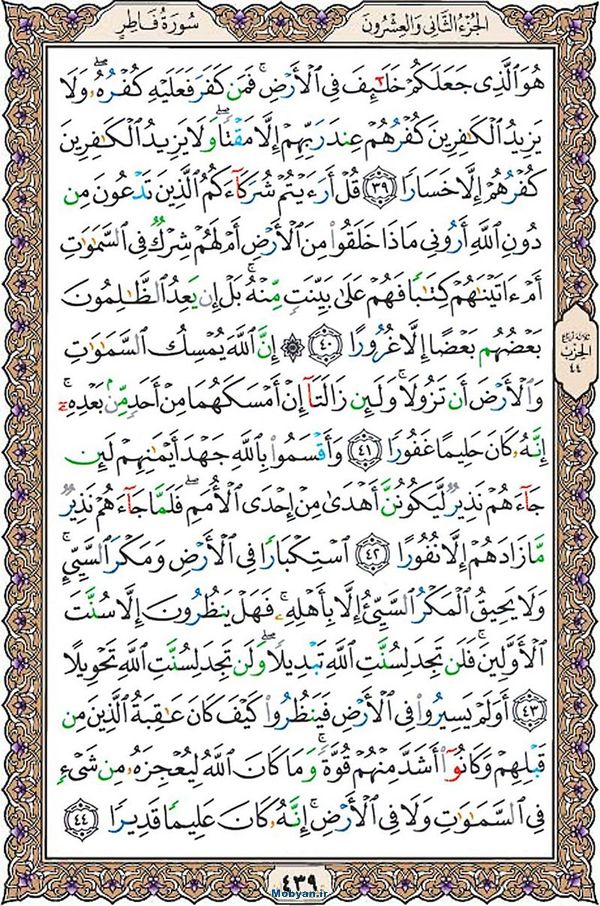 سُورَةُ فَاطِرٍ
الجُزءُ الثَّانِي وَالعِشرُونَ
هُوَ ٱلَّذِى جَعَلَكُمۡ خَلَـٰٓئِفَ فِى ٱلۡأَرۡضِ ۚ فَمَن كَفَرَ فَعَلَيۡهِ كُفۡرُهُۥ ۖ وَلَا
يَزِيدُ ٱلۡكَـٰفِرِينَ كُفۡرُهُمۡ عِندَ رَبِّهِمۡ إِلَّا مَقۡتًا ۖ وَلَا يَزِيدُ ٱلۡكَـٰفِرِينَ
كُفۡرُهُمۡ إِلَّا خَسَارًا ٣٩ قُلۡ أَرَءَيۡتُمۡ شُرَكَآءَكُمُ ٱلَّذِينَ تَدۡعُونَ مِن
دُونِ ٱللَّهِ أَرُونِى مَاذَا خَلَقُوا۟ مِنَ ٱلۡأَرۡضِ أَمۡ لَهُمۡ شِرۡكٌ فِى ٱلسَّمَـٰوَٰتِ
أَمۡ ءَاتَيۡنَـٰهُمۡ كِتَـٰبًا فَهُمۡ عَلَىٰ بَيِّنَتٍ مِّنۡهُ ۚ بَلۡ إِن يَعِدُ ٱلظَّـٰلِمُونَ
بَعۡضُهُم بَعۡضًا إِلَّا غُرُورًا ٤٠ ۞ إِنَّ ٱللَّهَ يُمۡسِكُ ٱلسَّمَـٰوَٰتِ
وَٱلۡأَرۡضَ أَن تَزُولَا ۚ وَلَئِن زَالَتَآ إِنۡ أَمۡسَكَهُمَا مِنۡ أَحَدٍ مِّنۢ بَعۡدِهِۦٓ ۚ
إِنَّهُۥ كَانَ حَلِيمًا غَفُورًا ٤١ وَأَقۡسَمُوا۟ بِٱللَّهِ جَهۡدَ أَيۡمَـٰنِهِمۡ لَئِن
جَآءَهُمۡ نَذِيرٌ لَّيَكُونُنَّ أَهۡدَىٰ مِنۡ إِحۡدَى ٱلۡأُمَمِ ۖ فَلَمَّا جَآءَهُمۡ نَذِيرٌ
مَّا زَادَهُمۡ إِلَّا نُفُورًا ٤٢ ٱسۡتِكۡبَارًا فِى ٱلۡأَرۡضِ وَمَكۡرَ ٱلسَّيِّئِ ۚ
وَلَا يَحِيقُ ٱلۡمَكۡرُ ٱلسَّيِّئُ إِلَّا بِأَهۡلِهِۦ ۚ فَهَلۡ يَنظُرُونَ إِلَّا سُنَّتَ
ٱلۡأَوَّلِينَ ۚ فَلَن تَجِدَ لِسُنَّتِ ٱللَّهِ تَبۡدِيلًا ۖ وَلَن تَجِدَ لِسُنَّتِ ٱللَّهِ تَحۡوِيلًا
٤٣ أَوَلَمۡ يَسِيرُوا۟ فِى ٱلۡأَرۡضِ فَيَنظُرُوا۟ كَيۡفَ كَانَ عَـٰقِبَةُ ٱلَّذِينَ مِن
قَبۡلِهِمۡ وَكَانُوٓا۟ أَشَدَّ مِنۡهُمۡ قُوَّةً ۚ وَمَا كَانَ ٱللَّهُ لِيُعۡجِزَهُۥ مِن شَىۡءٍ
فِى ٱلسَّمَـٰوَٰتِ وَلَا فِى ٱلۡأَرۡضِ ۚ إِنَّهُۥ كَانَ عَلِيمًا قَدِيرًا ٤٤
الحِزب
٤٤
٤٣٩
Mobyan.ir